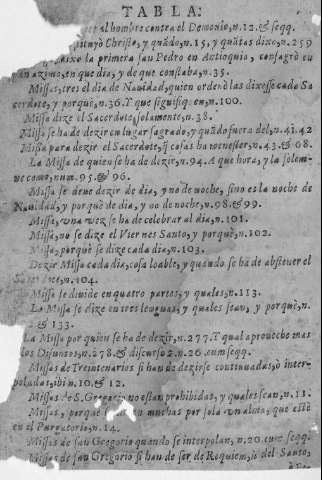 TABLA:
al hombre contra el Demonio, n.12. & seqq.
Christo, y quãdo, n.15, y quãtas dixo, n.259
la primera san Pedro en Antioquia, consagrò en
an azimo, en que dia, y de que constaba, n.35.
Missas, tres el dia de Nauidad, quien ordenò las dixesse cada Sa
cerdote, y porquè, n.36. Y que significquen, n.100.
Missa dize el Sacerdote solamente, n.38.
Missa se ha de dezir en lugar sagrado, y quãdo fuera del, n.41.42
Missa para dezir el Sacerdote, q̃ cosas ha menester, n.43. & 68.
La Missa de quien se ha de dezir, n.94. A que hora, y la solem-
ne como, num.95. & 96.
Missa se deue dezir de dia, y no de noche, sino es la noche de
Nauidad, y porquè de dia, y no de noche, n.98. & 99.
Missa, vna vez se ha de celebrar al dia, n.101.
Missa, no se dize el Viernes Santo, y porquè, n.102.
Missa, porquè se dize cada dia, n.103.
Dezir Missa cada dia, cosa loable, y quando se ha de abstener el
n.104.
Missa se diuide en quatro partes, y quales, n.113.
La Missa se dize en tres lenguas, y quales sean, y porquè, n.
& 133.
La Missa por quien se ha de dezir, n.277. Y qual aproueche mas
los Difuntos, n.278. & discurso 2. n.26. cum seqq.
Missas de Treintenarios si han de dezirse continuadas, ò inter-
poladas, ibi n.10. & 12.
Missas de S. Gregorio no estan prohibidas, y quales sean, n.11.
Missas, porquè muchas por sola vn alma, que estè
en el Purgatorio, n.14.
Missas de san Gregorio quando se interpolan, n.20. cum seqq.
Missas de san Gregorio si han de ser de Requiem, ò del Santo,